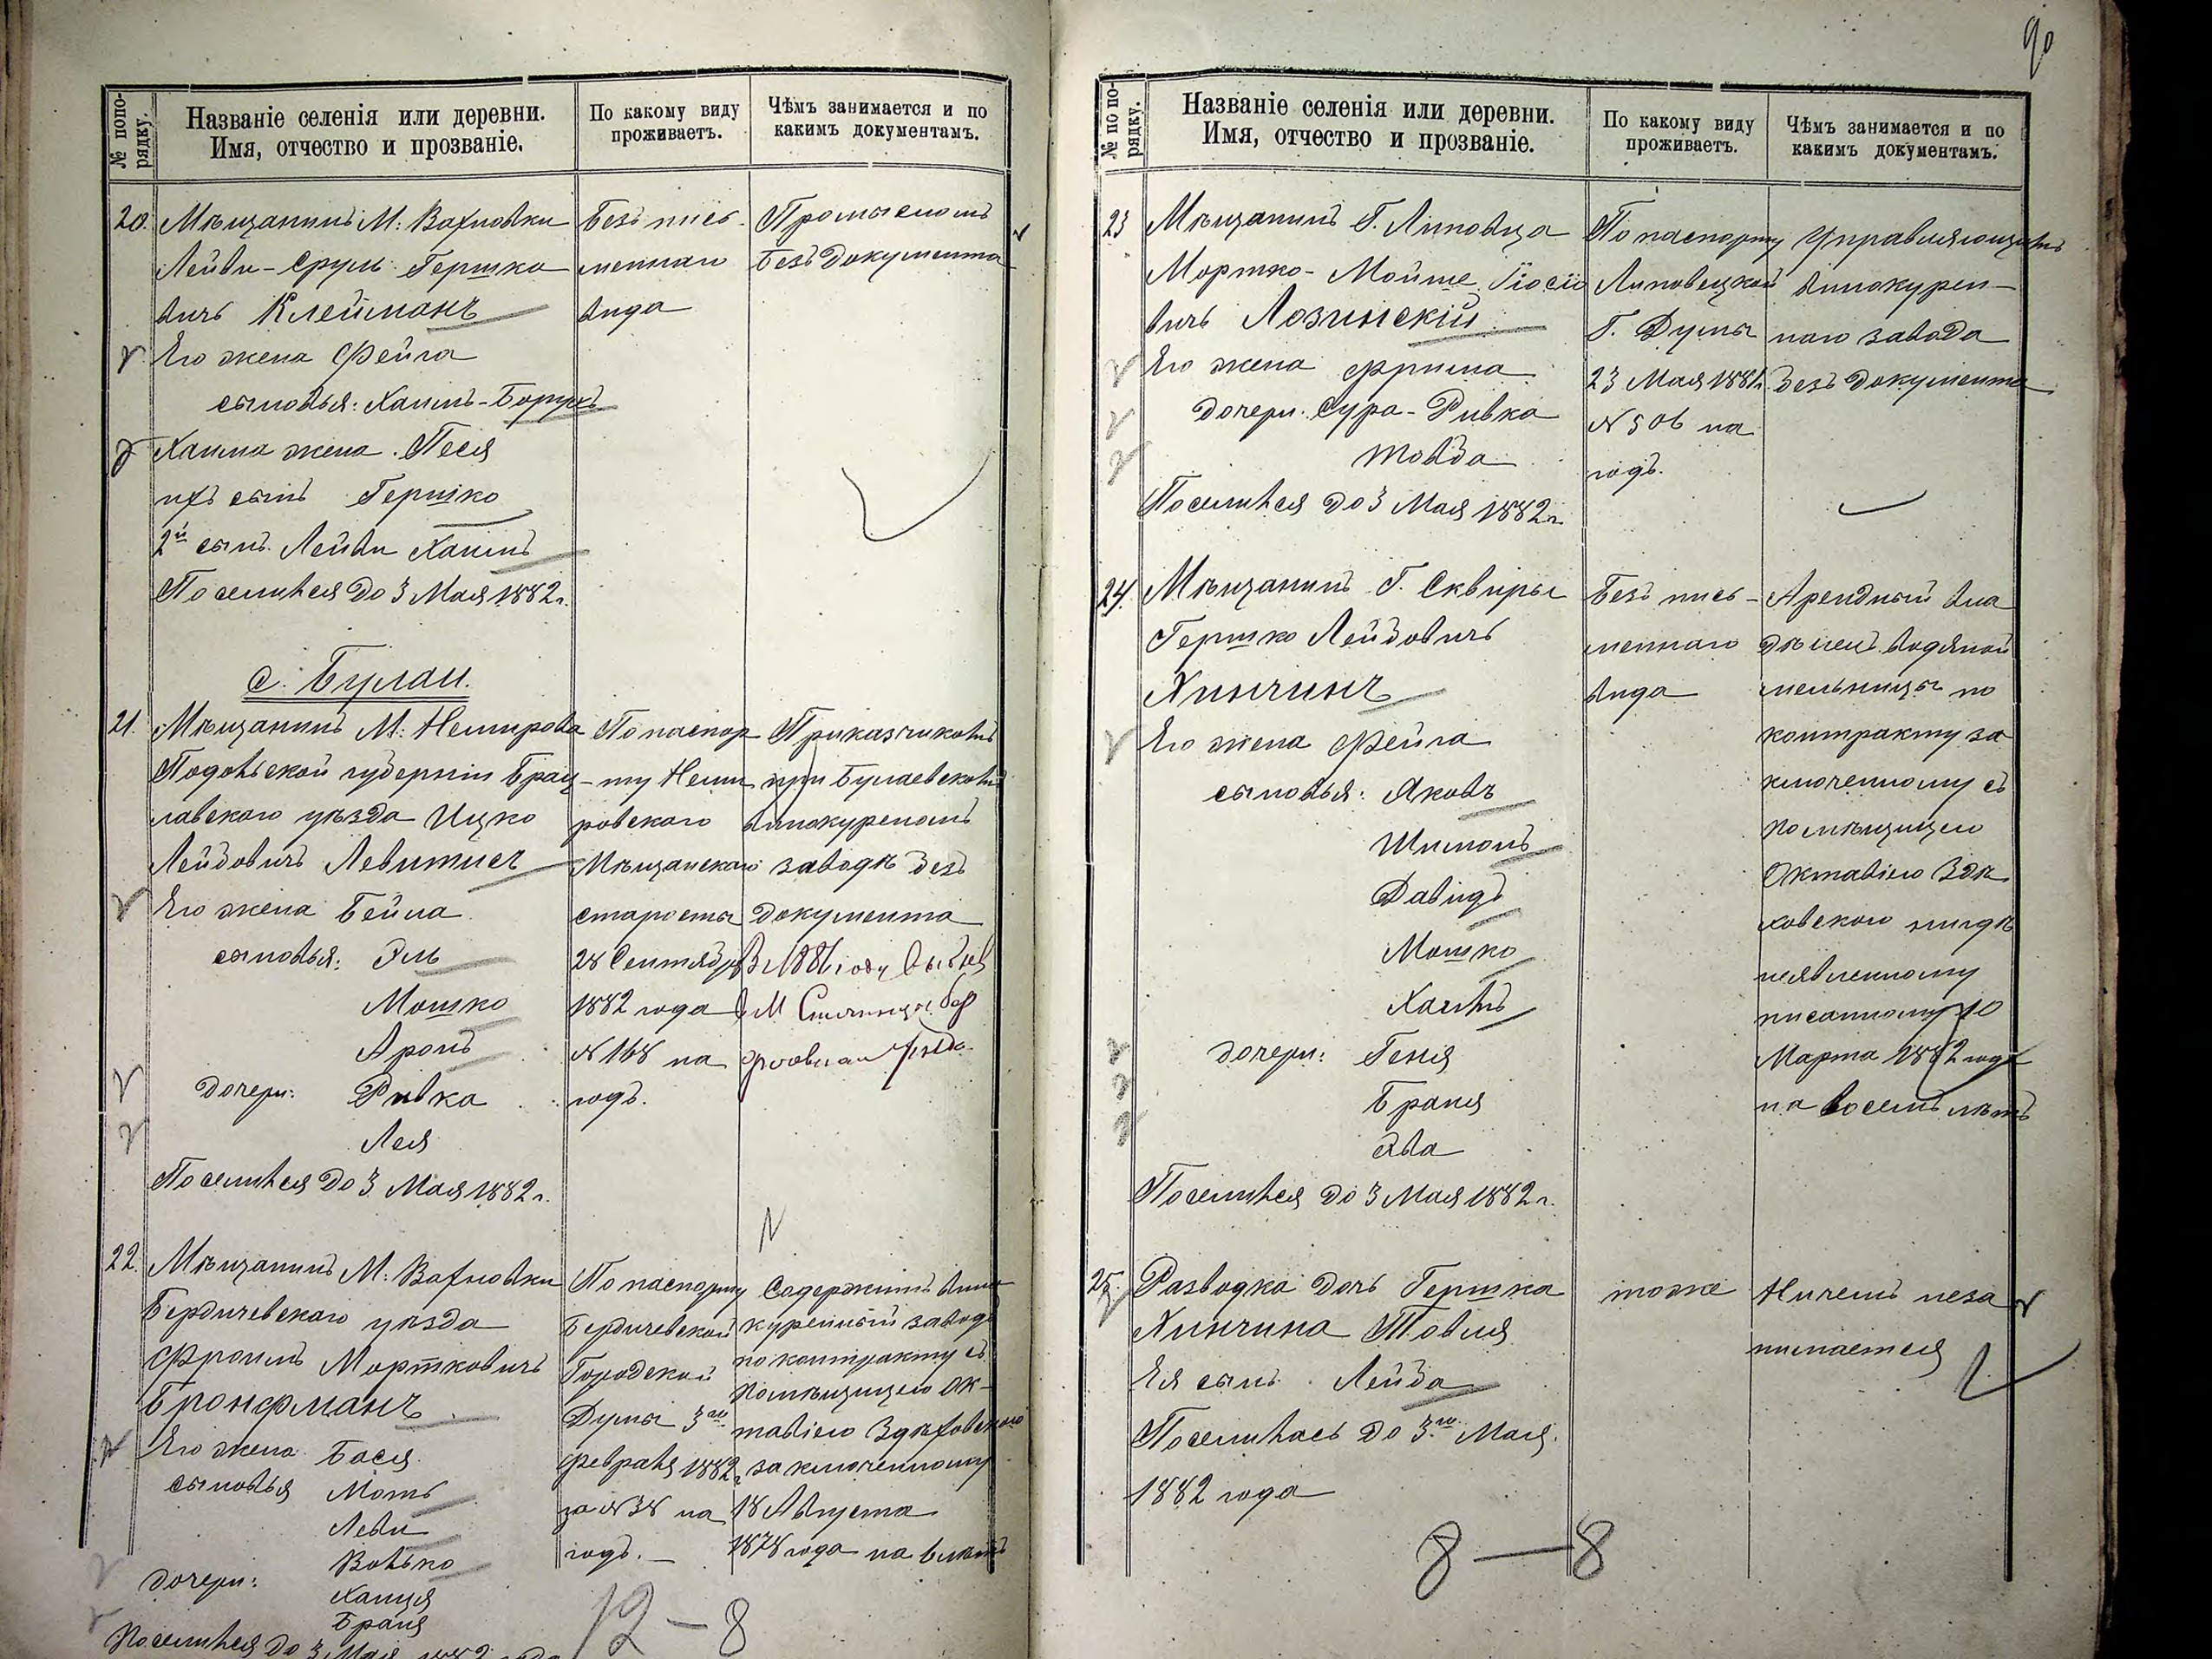 № по порядку.
Названіе селенія или деревни.
Имя, отчество и прозваніе.
По какому виду
проживаетъ.
Чѣмъ занимается и по
какимъ документамъ.
20.
Мѣщанинъ М: Вахновки
Лейви-Сруль Гершко
вичъ Клейманъ
Его жена Фейга
сыновья: Хаимъ-Борухъ
Хаима жена Песя
ихъ сынъ Гершко
2й сынъ Лейви Хаимъ
Поселился до 3 Мая 1882 г.
Безъ пись-
меннаго
вида
Промысломъ
безъ документа
с. Булаи.
21.
Мѣщанинъ М: Немирова
Подольской губерніи Брац-
лавскаго уѣзда Ицко
Лейбовичъ Левитисъ
Его жена Бейла
сыновья: Эль
Мошко
Аронъ
дочери: Ривка
Лея
Поселился до 3 Мая 1882 г.
По паспор
ту Неми
ровскаго
Мѣщанскаго
старосты
28 Сентября
1882 года
№ 168 на
годъ.
Приказчикомъ
при Булаевскомъ
винокуреномъ
заводѣ безъ
документа
В 1886 году
22.
Мѣщанинъ М: Вахновки
Бердичевскаго уѣзда
Фроимъ Мортковичъ
Бронфманъ
Его жена Бася
сыновья Моть
Леви
Волько
дочери: Ханця
Браня
Поселился до 3 Мая 1882 года
По паспорту
Бердичевской
Городской
Думы 3го
февраля 1882 г.
за № 38 на
годъ. —
Содержитъ вино
куренный заводъ
по контракту съ
помѣщицею Ок-
тавіею Здѣховскою
заключенному
18 Августа
1878 года на 6 лѣтъ
12 — 8
90
№ по порядку.
Названіе селенія или деревни.
Имя, отчество и прозваніе.
По какому виду
проживаетъ.
Чѣмъ занимается и по
какимъ документамъ.
23
Мѣщанинъ Г. Липовца
Мортко-Мойше Іосіо
вичъ Лозинскій
Его жена Фрима
дочери: Сура-Ривка
Товба
Поселился до 3 Мая 1882 г.
По паспорту
Липовецкой
Г. Думы
23 Мая 1881 г.
№ 506 на
годъ.
Управляющимъ
винокурен-
наго завода
безъ документа
24.
Мѣщанинъ Г. Сквиры
Гершко Лейбовичъ
Хинчинъ
Его жена Фейга
сыновья: Яковъ
Шимонъ
Давидъ
Мошко
Хаимъ
дочери: Геня
Браня
Хва
Поселился до 3 Мая 1882 г.
Безъ пись-
меннаго
вида
Арендный вла
дѣлецъ водяной
мельницы по
контракту за
ключенному съ
помѣщицею
Октавіею Здѣ
ховскою нигдѣ
неявленному
писанному 10
Марта 1882 года
на восемь лѣтъ
25.
Разводка дочь Гершка
Хинчина Товля
Ея сынъ Лейба
Поселилась до 3го Мая
1882 года
тоже
Ничемъ неза
нимается
8 — 8